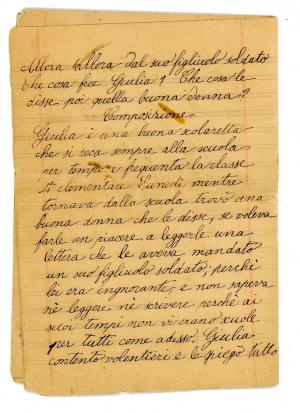 Allora allora dal suo figliuolo soldato
che cosa fece Giulia? Che cosa le
disse poi quella buona donna?
Composizione
Giulia è una buona scolaretta
che si reca sempre alla scuola
per tempo e frequenta la classe
elementare Lunedì mentre
tornava dalla scuola trovò una
buona donna che le disse, se voleva
farle un piacere a leggerle una
lettera che le aveva mandato
un suo figliuolo soldato, perchè
lei era ingnorante, e non sapeva
nè leggere nè scrivere perchè ai
suoi tempi non vi erano scuole
per tutti come adesso. Giulia
contento volentieri e le spiegò tutto